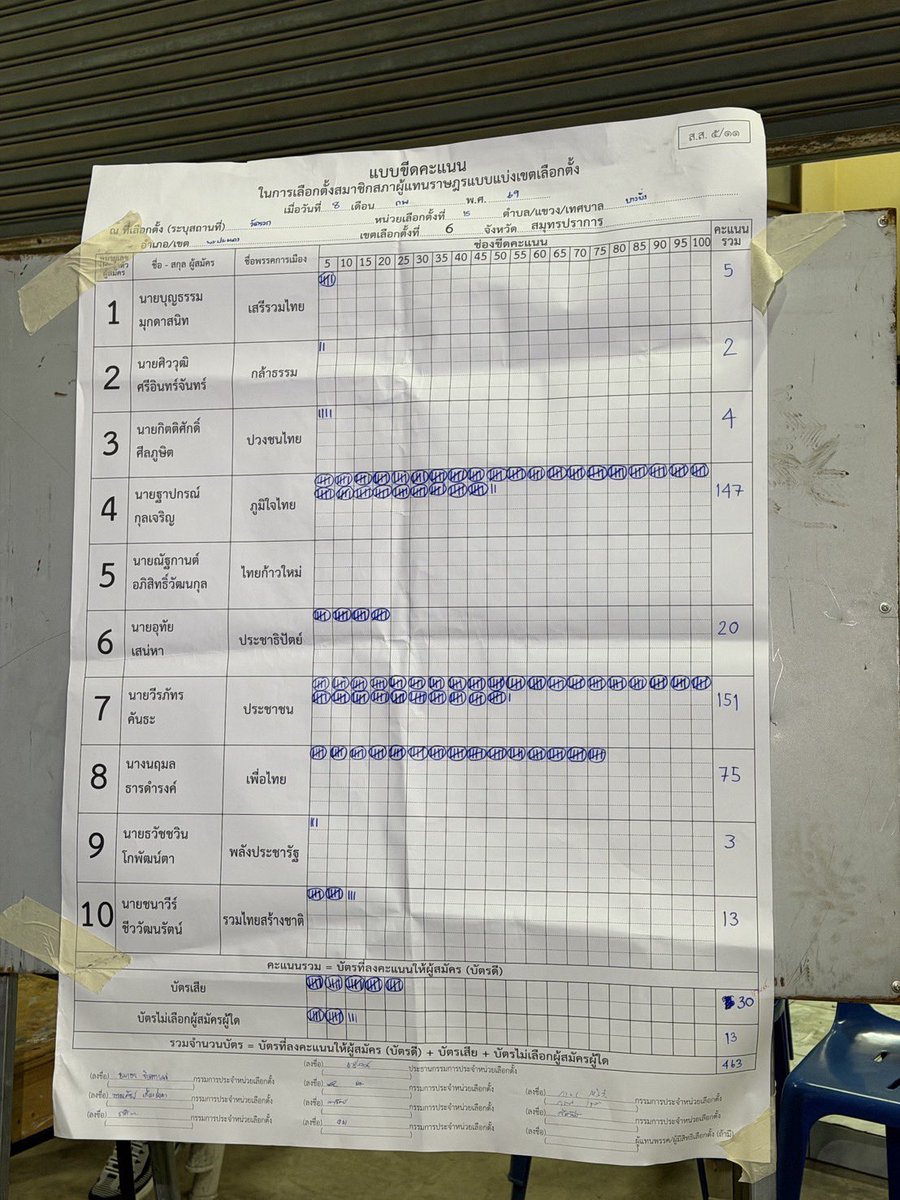 ส.ส. ๕/๑๑
แบบขีดคะแนน
ในการเลือกตั้งสมาชิกสภาผู้แทนราษฎรแบบแบ่งเขตเลือกตั้ง
เมื่อวันที่ 8 เดือน กพ พ.ศ. ๖๙
ณ ที่เลือกตั้ง (ระบุสถานที่) หน่วยเลือกตั้งที่ 15 ตำบล/แขวง/เทศบาล
อำเภอ/เขต เขตเลือกตั้งที่ 6 จังหวัด สมุทรปราการ
หมายเลขประจำตัวผู้สมัคร ชื่อ - สกุล ผู้สมัคร ชื่อพรรคการเมือง ช่องขีดคะแนน คะแนนรวม
5 10 15 20 25 30 35 40 45 50 55 60 65 70 75 80 85 90 95 100
1 นายบุญธรรม มุกดาสนิท เสรีรวมไทย 5
2 นายศิววุฒิ ศรีอินทร์จันทร์ กล้าธรรม 2
3 นายกิตติศักดิ์ ศีลภูษิต ปวงชนไทย 4
4 นายฐาปกรณ์ กุลเจริญ ภูมิใจไทย 147
5 นายณัฐกานต์ อภิสิทธิ์วัฒนกุล ไทยก้าวใหม่
6 นายอุทัย เสน่หา ประชาธิปัตย์ 20
7 นายวีรภัทร คันธะ ประชาชน 151
8 นางนฤมล ธารดำรงค์ เพื่อไทย 75
9 นายธวัชชวิน โกพัฒน์ตา พลังประชารัฐ 3
10 นายชนาวีร์ ชีววัฒนรัตน์ รวมไทยสร้างชาติ 13
คะแนนรวม = บัตรที่ลงคะแนนให้ผู้สมัคร (บัตรดี)
บัตรเสีย 30
บัตรไม่เลือกผู้สมัครผู้ใด 13
รวมจำนวนบัตร = บัตรที่ลงคะแนนให้ผู้สมัคร (บัตรดี) + บัตรเสีย + บัตรไม่เลือกผู้สมัครผู้ใด 463
(ลงชื่อ) กรรมการประจำหน่วยเลือกตั้ง (ลงชื่อ) ประธานกรรมการประจำหน่วยเลือกตั้ง
(ลงชื่อ) กรรมการประจำหน่วยเลือกตั้ง (ลงชื่อ) กรรมการประจำหน่วยเลือกตั้ง (ลงชื่อ) กรรมการประจำหน่วยเลือกตั้ง
(ลงชื่อ) กรรมการประจำหน่วยเลือกตั้ง (ลงชื่อ) กรรมการประจำหน่วยเลือกตั้ง (ลงชื่อ) กรรมการประจำหน่วยเลือกตั้ง
(ลงชื่อ) กรรมการประจำหน่วยเลือกตั้ง (ลงชื่อ) ผู้แทนพรรค/ผู้มีสิทธิเลือกตั้ง (ถ้ามี)